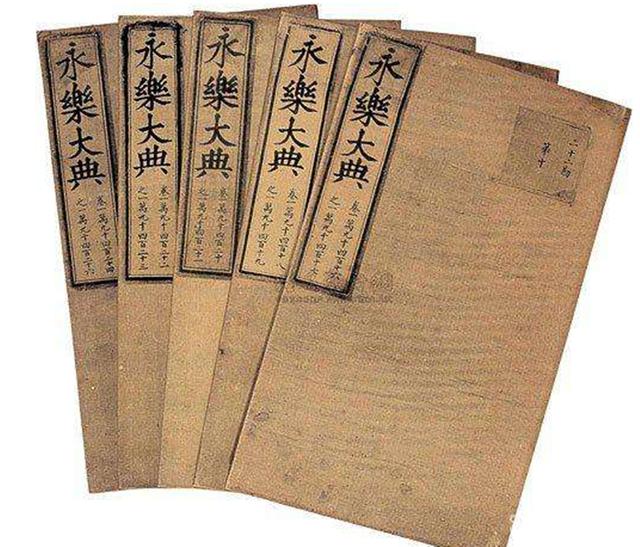 永樂大典
卷一萬九千四百二十四
之一萬九千四百二十六
永樂大典
卷一萬九千四百二十二
之一萬九千四百二十三
永樂大典
卷一萬九千四百二十
之一萬九千四百二十一
永樂大典
卷一萬九千四百十八
之一萬九千四百十九
永樂大典
卷一萬九千四百十六
二十二勘
第十